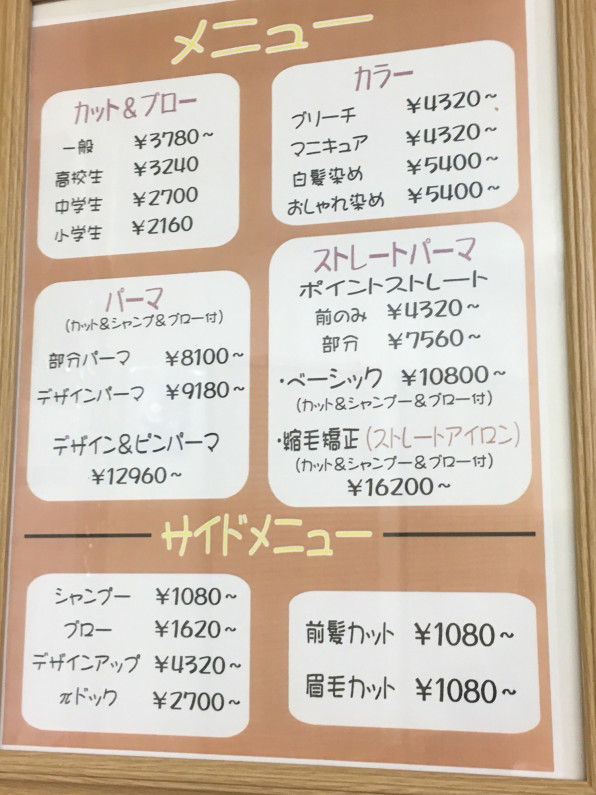 メニュー
カット&ブロー
一般 ¥3780~
高校生 ¥3240
中学生 ¥2700
小学生 ¥2160
カラー
ブリーチ ¥4320~
マニキュア ¥4320~
白髪染め ¥5400~
おしゃれ染め ¥5400~
パーマ
(カット&シャンプ&ブロー付)
部分パーマ ¥8100~
デザインパーマ ¥9180~
デザイン&ピンパーマ
¥12960~
ストレートパーマ
ポイントストレート
前のみ ¥4320~
部分 ¥7560~
・ベーシック ¥10800~
(カット&シャンプー&ブロー付)
・縮毛矯正(ストレートアイロン)
(カット&シャンプー&ブロー付)
¥16200~
サイドメニュー
シャンプー ¥1080~
ブロー ¥1620~
デザインアップ ¥4320~
πドック ¥2700~
前髪カット ¥1080~
眉毛カット ¥1080~